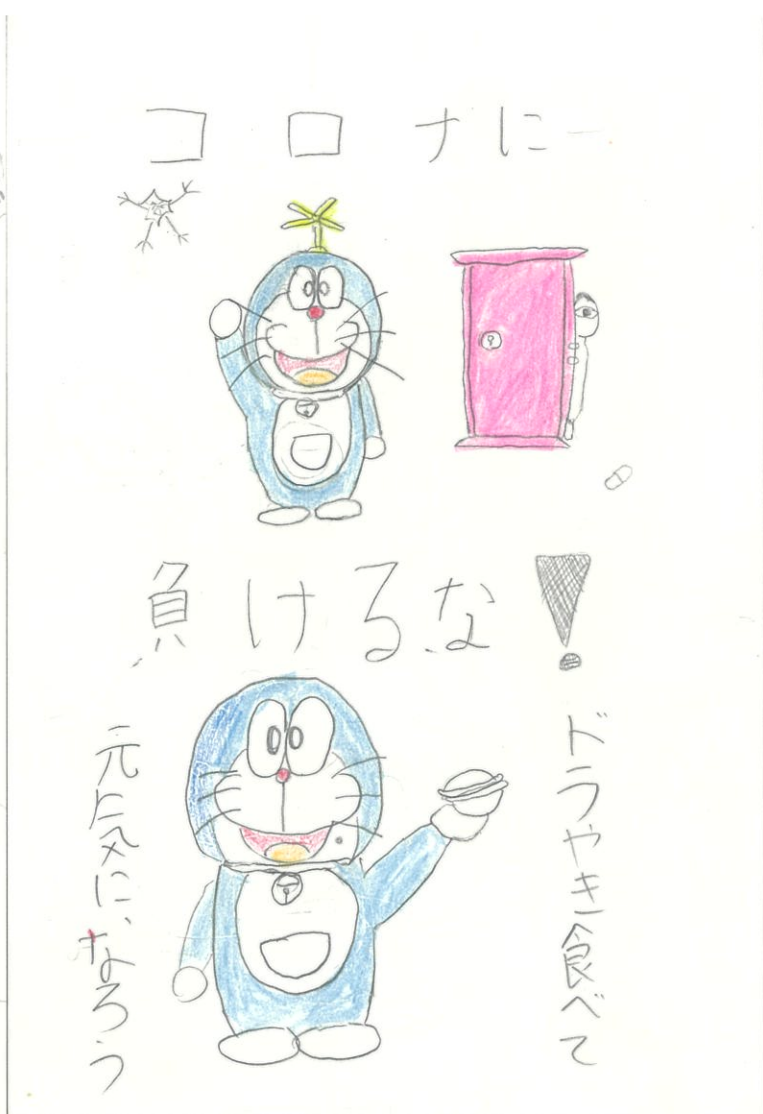 コロナに
負けるな！
ドラやき食べて
元気に、なろう